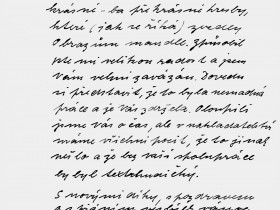 krásné - ba překrásné kresby,
které (jak se říká) zvedly
Obrazům mandle. Způsobil
jste mi velikou radost a jsem
Vám velmi zavázán. Dovedu
si představit, že to byla nemadná
práce a že Vás zdržela. Oloupili
jsme Vás o čas, ale v nakladatelství
máme všichni pocit, že to jinak
nešlo a že bez Vaší spolupráce
by byl
S novými díky, s pozdravem